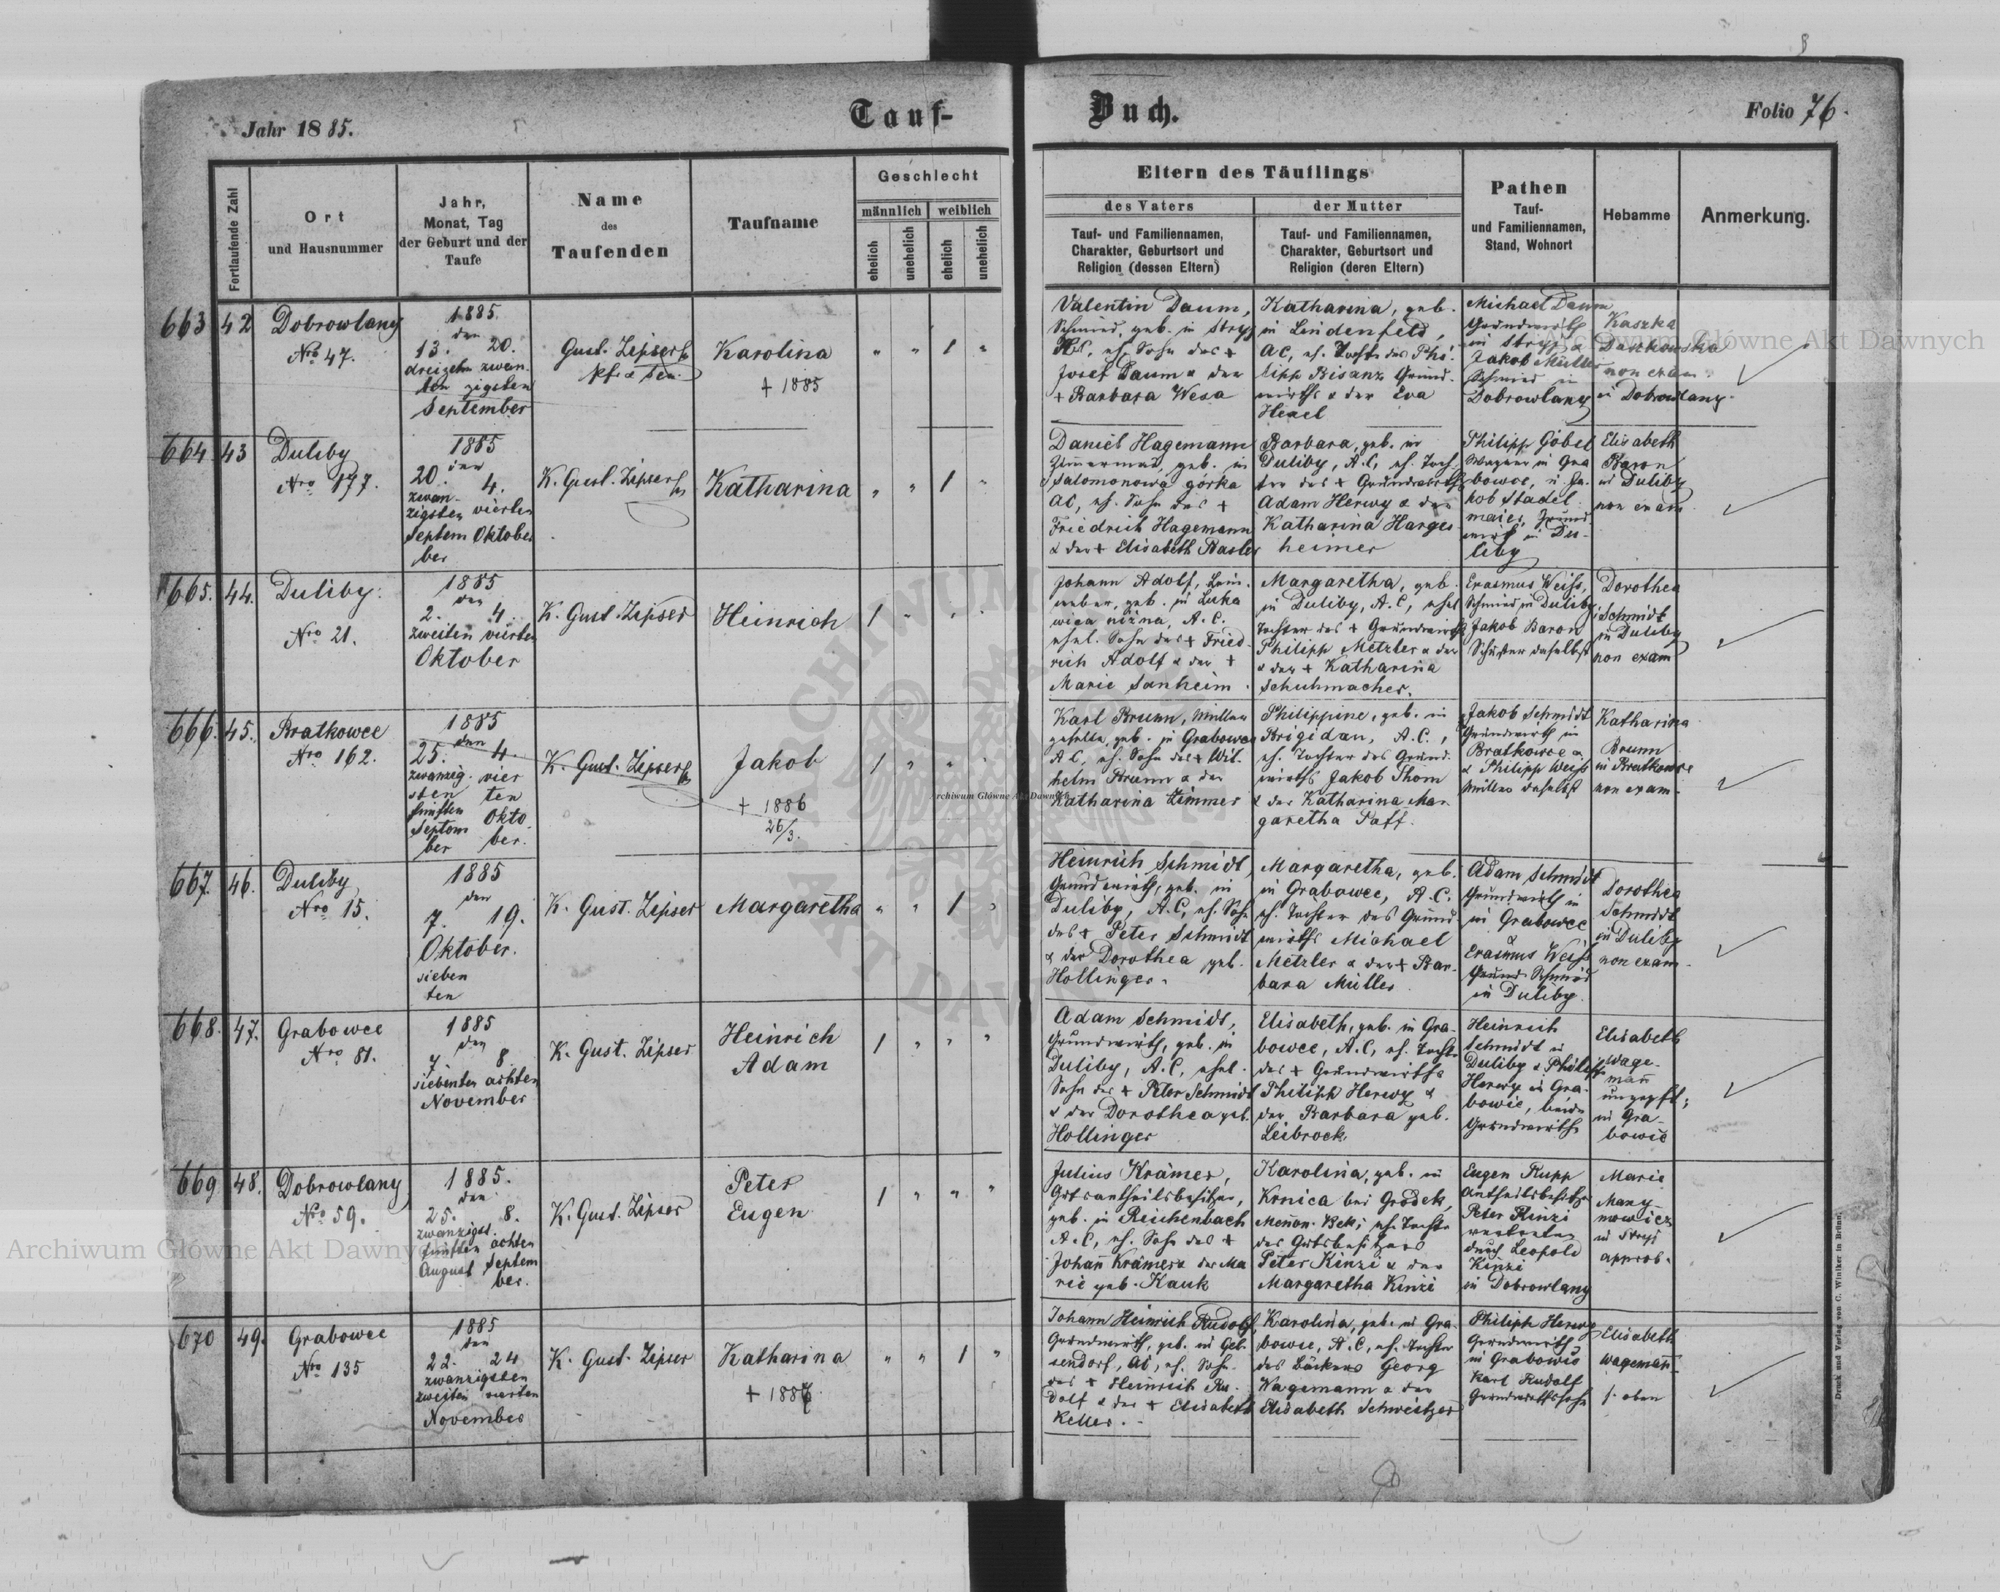 Jahr 1885.
Tauf-
Buch.
Folio 76.
Fortlaufende Zahl
Ort
und Hausnummer
Jahr,
Monat, Tag
der Geburt und der
Taufe
Name
des
Taufenden
Taufname
Geschlecht
männlich
weiblich
ehelich
unehelich
ehelich
unehelich
Eltern des Täuflings
des Vaters
der Mutter
Tauf- und Familiennamen,
Charakter, Geburtsort und
Religion (dessen Eltern)
Tauf- und Familiennamen,
Charakter, Geburtsort und
Religion (deren Eltern)
Pathen
Tauf-
und Familiennamen,
Stand, Wohnort
Hebamme
Anmerkung.
663
42
Dobrowlany
Nro 47.
1885.
den
13. 20.
dreizehn zwan-
ten zigsten
September
Gust. Zipser
Karolina
+ 1885
" " 1 "
Valentin Daum,
Schmied, geb. in Stryj
eh. Sohn des +
Josef Daum & der
+ Barbara Wesa
Katharina, geb.
in Lindenfeld,
AC, eh. Tocht. des Phi-
lipp Bisanz Grund-
wirths & der Eva
Hexel
Michael Daum
Grundwirth
in Stryj &
Jakob Müller
Schmied in
Dobrowlany
Kaszka
Daszkowska
non exam.
in Dobrowlany.
664
43
Duliby
Nro 177.
1885
den
20. 4.
zwan- vierten
zigsten
Septem Oktober
ber
K. Gust. Zipser
Katharina
" " 1 "
Daniel Hagemann
Zimmerman, geb. in
Salomonowa górka
AC, eh. Sohn des +
Friedrich Hagemann
& der + Elisabeth Basler
Barbara, geb. in
Duliby, A.C, eh. Toch-
ter des + Grundwirths
Adam Herwy & der
Katharina Harges
heimer
Philipp Göbel
Wagner in Gra
bowce, u. Ja-
kob Stadel
maier, Grund-
wirth in Du-
liby
Elisabeth
Baron
in Duliby
non exam
665.
44.
Duliby.
Nro 21.
1885
den
2. 4.
zweiten vierten
Oktober
K. Gust. Zipser
Heinrich
1 " " "
Johann Adolf, Lein-
weber, geb. in Luka
wica niżna, A.C.
ehel. Sohn des + Fried-
rich Adolf & der +
Marie Sanheim.
Margaretha, geb.
in Duliby, A.C, ehel
Tochter des + Grundwirth
Philipp Metzler & der
& der + Katharina
Schuhmacher.
Erasmus Weiss,
Schmied in Duliby,
Jakob Baron
Schuster daselbst
Dorothea
Schmidt
in Duliby
non exam
666.
45.
Bratkowce
Nro 162.
1885
den
25. 4.
zwanzig- vier
sten ten
fünften Okto
Septem ber.
ber
K. Gust. Zipser
Jakob
+ 1886
26/3.
1 " " "
Karl Brunn, Müller
geselle, geb. in Grabowce
AC, eh. Sohn des + Wil-
helm Brunn & der
Katharina Zimmer
Philippine, geb. in
Brigidau, A.C.,
eh. Tochter des Grund-
wirths Jakob Thom
& der Katharina Mar
garetha Paff.
Jakob Schmidt
Grundwirth in
Bratkowce &
& Philipp Weiss
Müller daselbst
Katharina
Brunn
in Bratkowce
non exam.
667.
46.
Duliby
Nro 15.
1885
den
7. 19.
Oktober.
sieben
ten
K. Gust. Zipser
Margaretha
" " 1 "
Heinrich Schmidt,
Grundwirth, geb. in
Duliby, A.C, eh. Sohn
des + Peter Schmidt
& der Dorothea geb.
Hollinger.
Margaretha, geb.
in Grabowce, A.C.
eh. Tochter des Grund-
wirths Michael
Metzler & der + Bar-
bara Müller
Adam Schmidt
Grundwirth in
in Grabowce
&
Erasmus Weiss
Schmied
in Duliby.
Dorothea
Schmidt
in Duliby
non exam.
668.
47.
Grabowce
Nro 81.
1885
den
7. 8.
siebenten achten
November
K. Gust. Zipser
Heinrich
Adam
1 " " "
Adam Schmidt,
Grundwirth, geb. in
Duliby, A.C, ehel.
Sohn des + Peter Schmidt
& der Dorothea geb.
Hollinger
Elisabeth, geb. in Gra-
bowce, A.C, eh. Tochter
des + Grundwirths
Philipp Herwy &
der Barbara geb.
Leibrock.
Heinrich
Schmidt in
Duliby & Philipp
Herwy in Gra-
bowce, beide
Grundwirthe
Elisabeth
Wage-
mañ
ungepft;
in Gra-
bowce
669
48.
Dobrowlany
Nro 59.
1885.
den
25. 8.
zwanzigst.
fünften achten
August Septem
ber.
K. Gust. Zipser
Peter
Eugen
1 " " "
Julius Krämer,
Gutsantheilsbesitzer,
geb. in Reichenbach
A.C, eh. Sohn des +
Johañ Krämer & der Ma
rie geb. Kauk
Karolina, geb. in
Krnica bei Grodek,
Menon. Bek; eh. Tochter
des Gutsbesitzers
Peter Kinzi & der
Margaretha Kinzi
Eugen Rupp
Antheilsbesitzer
Peter Kinzi
vertreten
durch Leopold
Kinzi
in Dobrowlany
Marie
Many-
mowicz
in Stryj
approb.
670
49.
Grabowce
Nro 135
1885
den
22. 24
zwanzigsten
zweiten vierten
November
K. Gust. Zipser
Katharina
+ 1887
" " 1 "
Johann Heinrich Rudolf,
Grundwirth, geb. in Gel-
sendorf, AC, eh. Sohn
des + Heinrich Ru-
dolf & der + Elisabeth
Keller.
Karolina, geb. in Gra-
bowce, A.C, eh. Tochter
des Bäckers Georg
Wagemann & der
Elisabeth Schweitzer
Philipp Herwy
Grundwirth
in Grabowce
Karl Rudolf
Grundwirthssohn
Elisabeth
Wagemañ
s. oben
Druck und Verlag von C. Winiker in Brünn.
Archiwum Główne Akt Dawnych
Archiwum Główne Akt Dawnych
Archiwum Główne Akt Dawnych
ARCHIWUM
AKT DAWNYCH